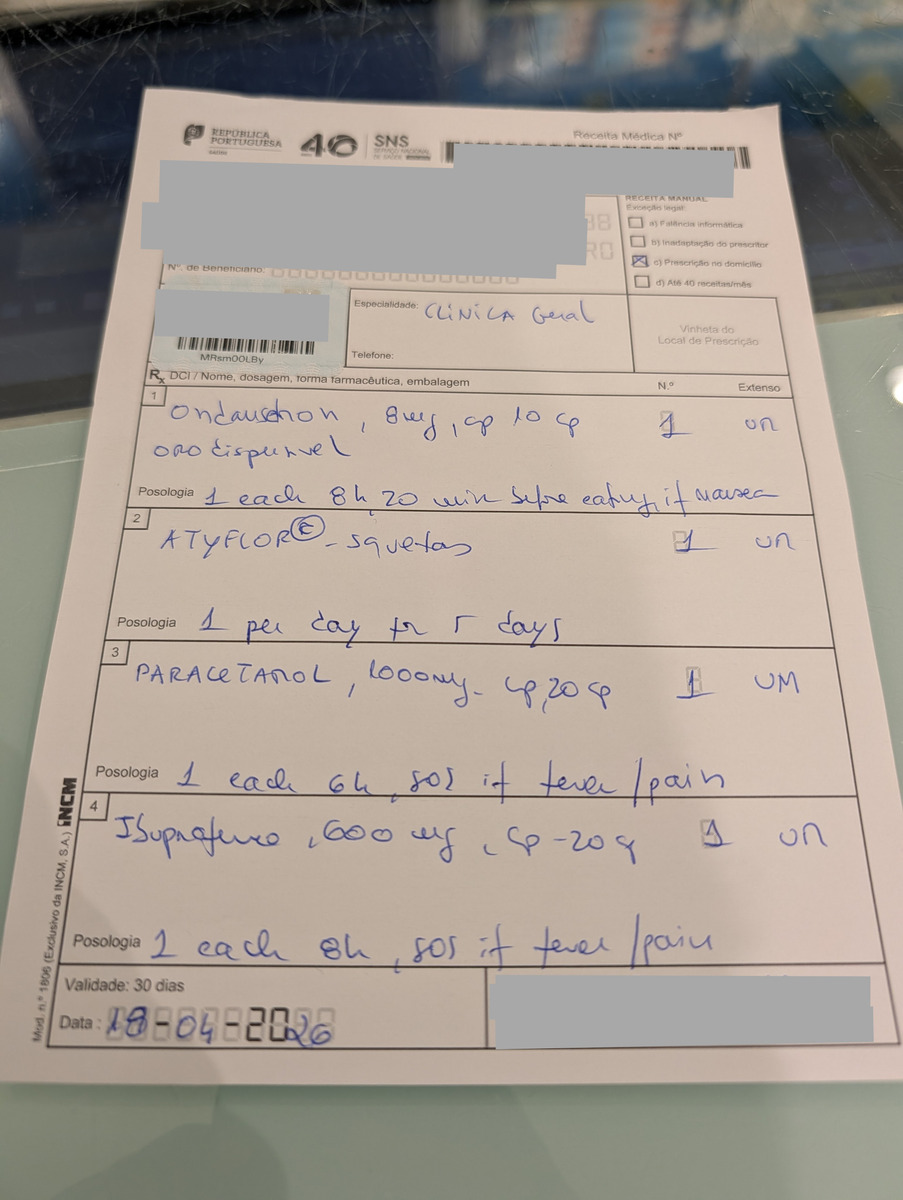 REPÚBLICA PORTUGUESA
SAÚDE
40 SNS
SERVIÇO NACIONAL DE SAÚDE
Receita Médica Nº
RECEITA MANUAL
Exceção legal:
a) Falência informática
b) Inadaptação do prescritor
c) Prescrição no domicílio
d) Até 40 receitas/mês
Nº. de Beneficiário:
Especialidade: CLINICA Geral
Telefone:
Vinheta do
Local de Prescrição
MRsm00LBy
Rx DCI / Nome, dosagem, forma farmacêutica, embalagem N.º Extenso
1 Ondansetron, 8mg, cp 10 cp 1 um
orodispersivel
Posologia 1 each 8h, 20 min before eating, if nausea
2 ATYFLOR - saquetas 1 um
Posologia 1 per day for 5 days
3 PARACETAMOL, 1000mg - cp, 20 cp 1 UM
Posologia 1 each 6h, SOS if fever/pain
4 Ibuprofeno, 600 mg, cp - 20 cp 1 um
Posologia 1 each 8h, SOS if fever/pain
Validade: 30 dias
Data: 18-04-2026
Mod. n.º 1806 (Exclusivo da INCM, S.A.) INCM